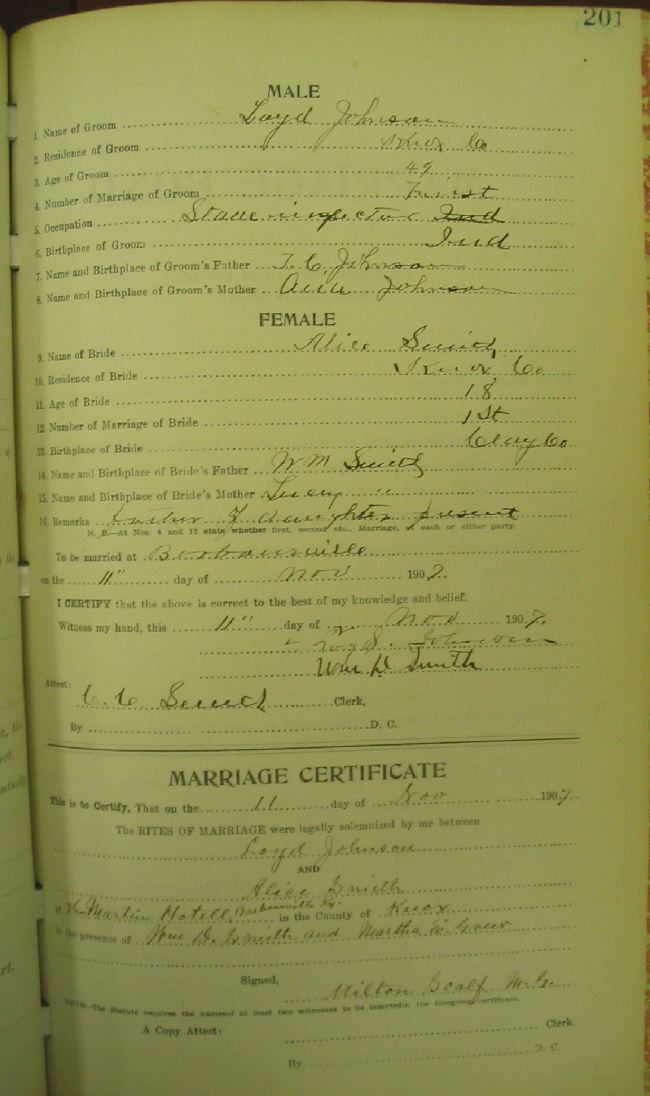 201
MALE
1. Name of Groom Loyd Johnson
2. Residence of Groom Knox Co
3. Age of Groom 49
4. Number of Marriage of Groom First
5. Occupation Stave inspector Ind
6. Birthplace of Groom Ind
7. Name and Birthplace of Groom's Father T. C. Johnson
8. Name and Birthplace of Groom's Mother Johnson
FEMALE
9. Name of Bride Alice Smith
10. Residence of Bride Knox Co
11. Age of Bride 18
12. Number of Marriage of Bride 1st
13. Birthplace of Bride Clay Co
14. Name and Birthplace of Bride's Father Wm Smith
15. Name and Birthplace of Bride's Mother Lucy "
16. Remarks Father of daughter present
N. B.—At Nos. 4 and 12 state whether first, second etc., Marriage, of each or either party.
To be married at Barbourville
on the 11" day of Nov 1907.
I CERTIFY that the above is correct to the best of my knowledge and belief.
Witness my hand, this 11" day of Nov 1907.
Loyd Johnson
Wm D Smith
Attest:
C. C. Smith Clerk,
By D. C.
MARRIAGE CERTIFICATE
This is to Certify, That on the 11 day of Nov 1907
The RITES OF MARRIAGE were legally solemnized by me between
Loyd Johnson
AND
Alice Smith
at the Martin Hotell, Barbourville Ky. in the County of Knox
in the presence of Wm D. Smith and Martha E. Greer
Signed,
Milton Scalf M. G.
NOTE—The Statute requires the names of at least two witnesses to be inserted in the foregoing certificate.
A Copy Attest: Clerk
By D. C.